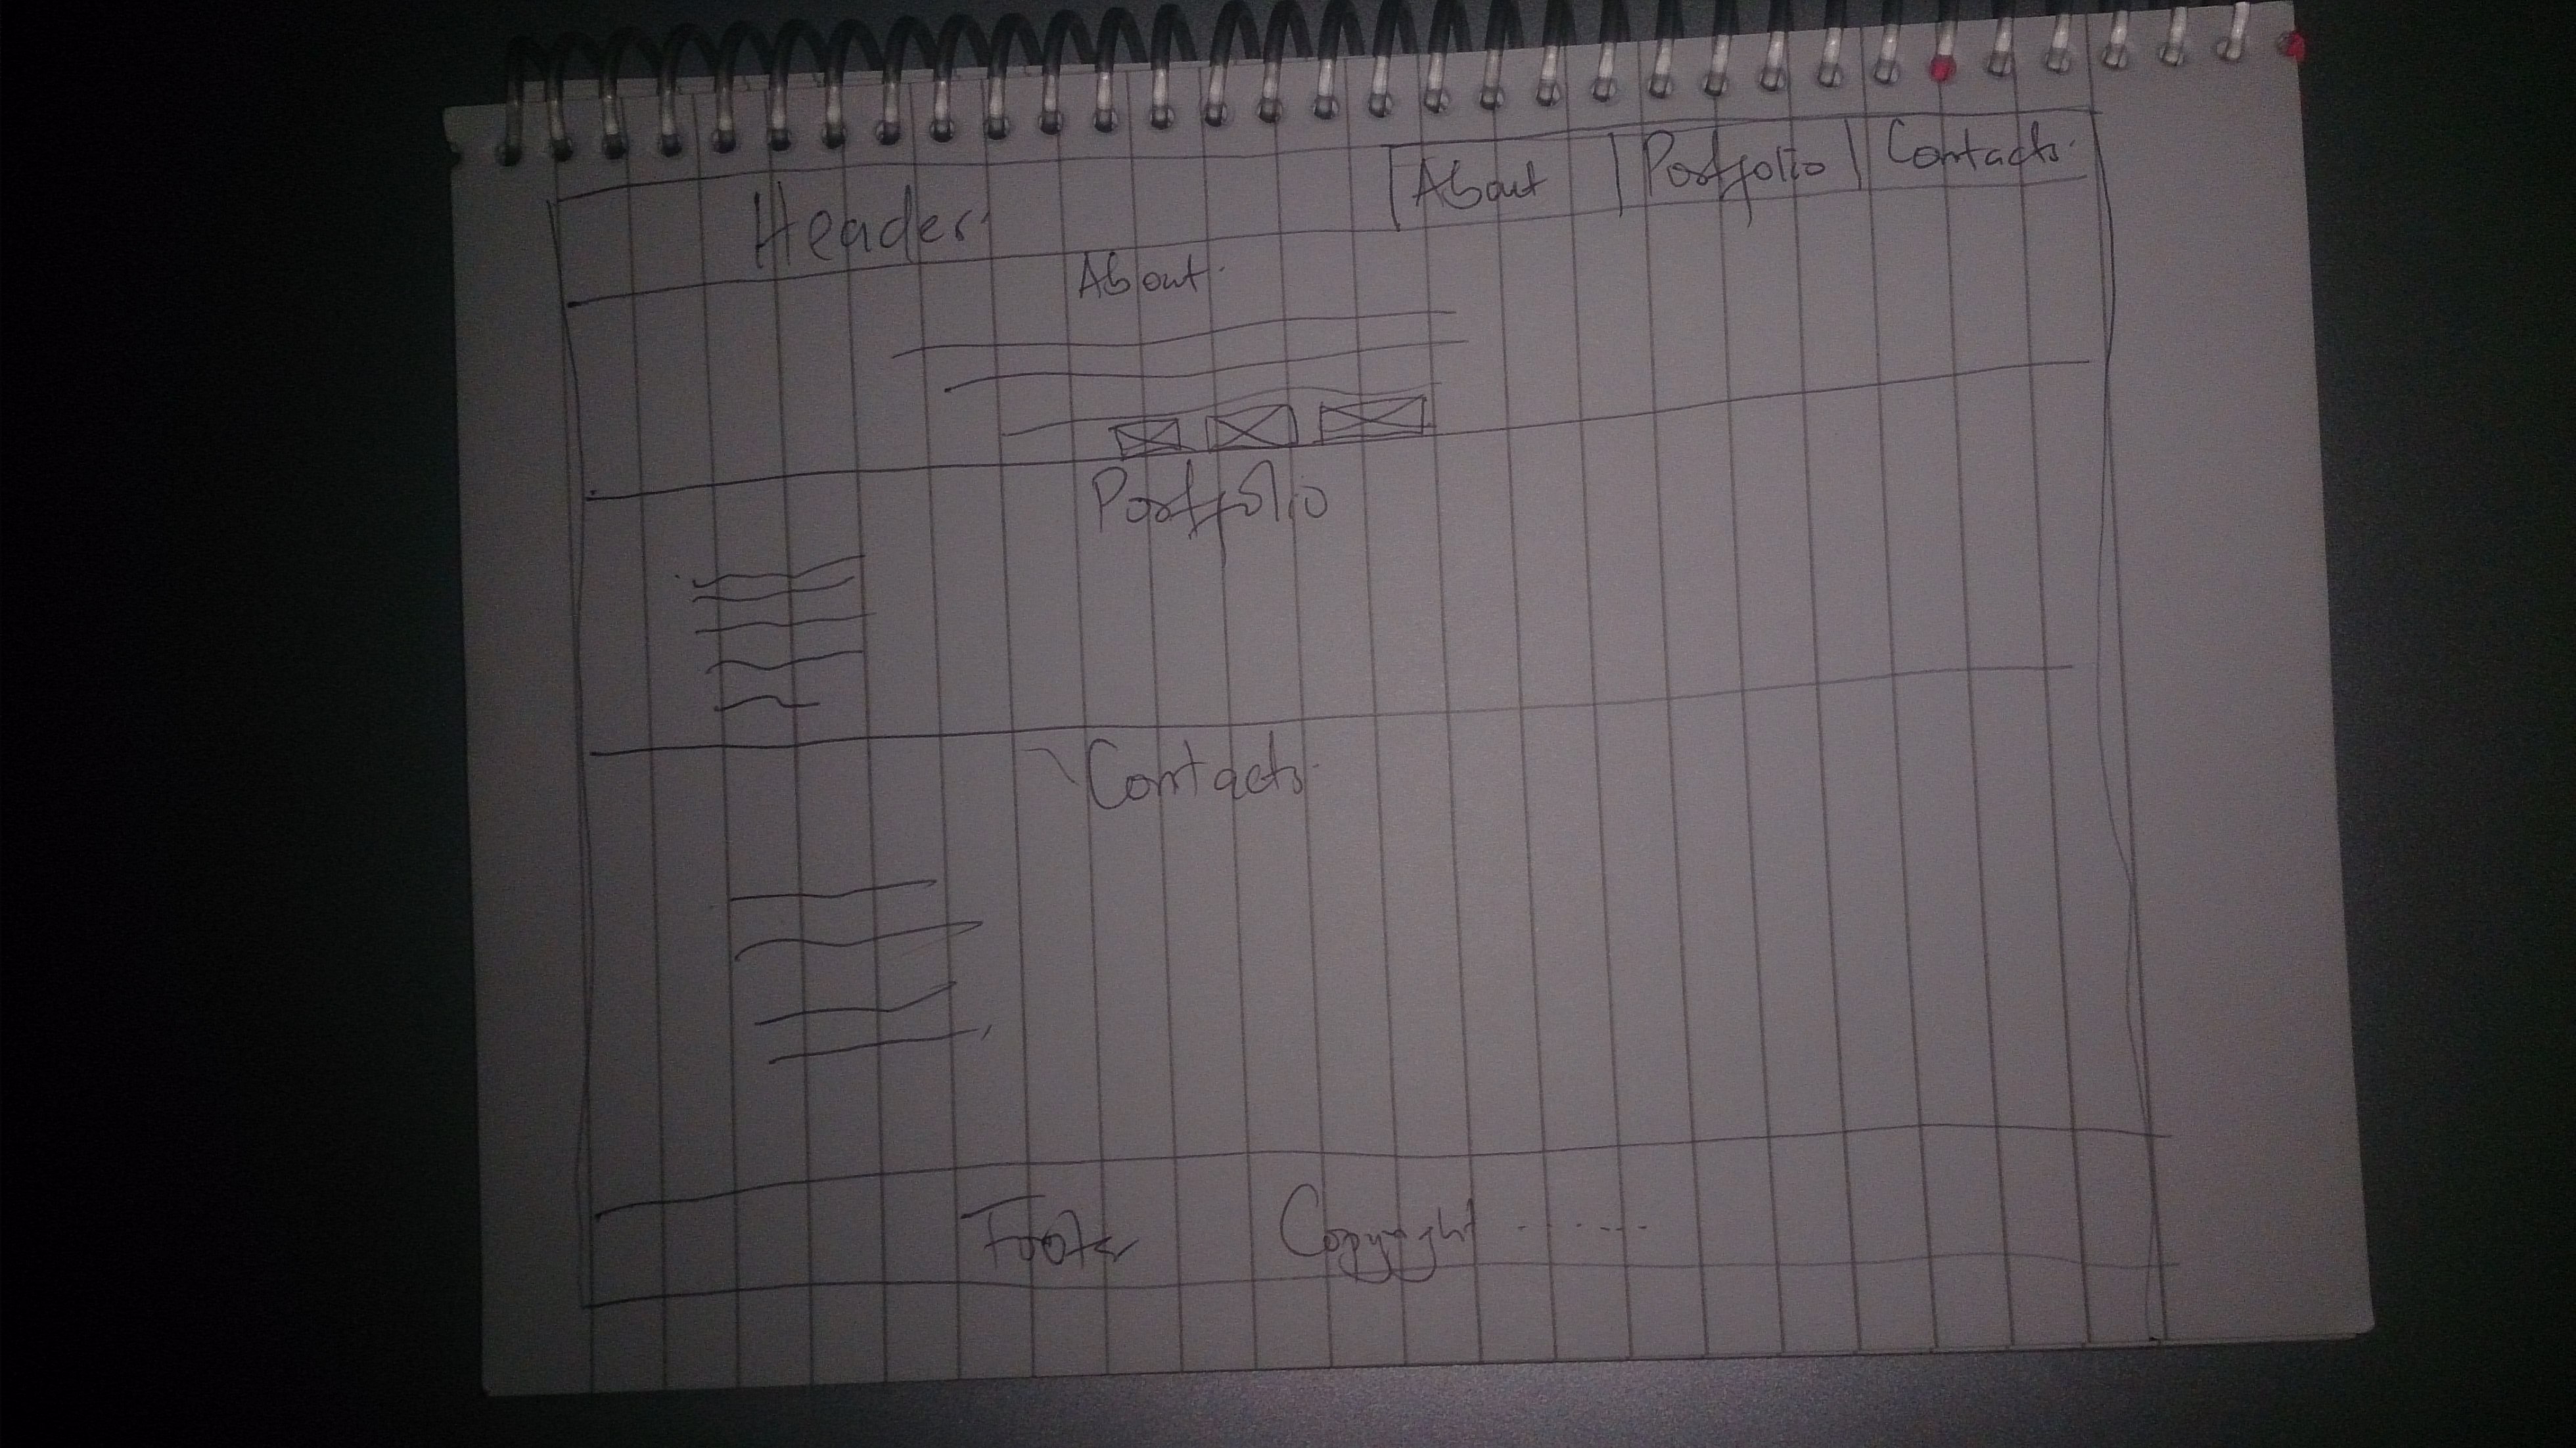 Header
About | Portfolio | Contact
About
Portfolio
Contact
Footer Copyright